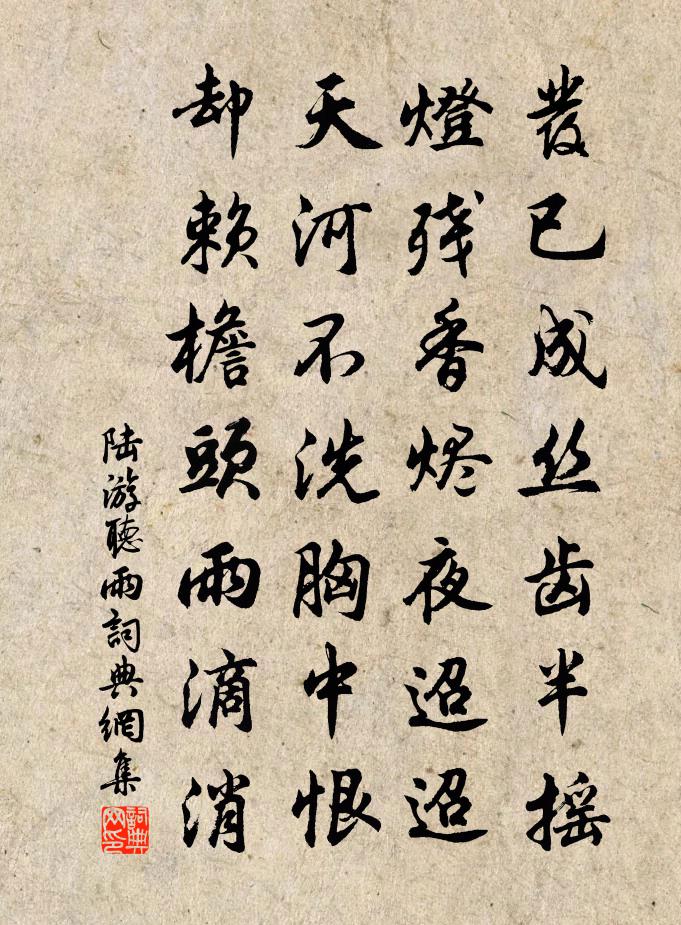 發已成丝齿半摇
燈残香烬夜迢迢
天河不洗胸中恨
却赖檐頭雨滴消
陆游聽雨詞典網集
詞典网印